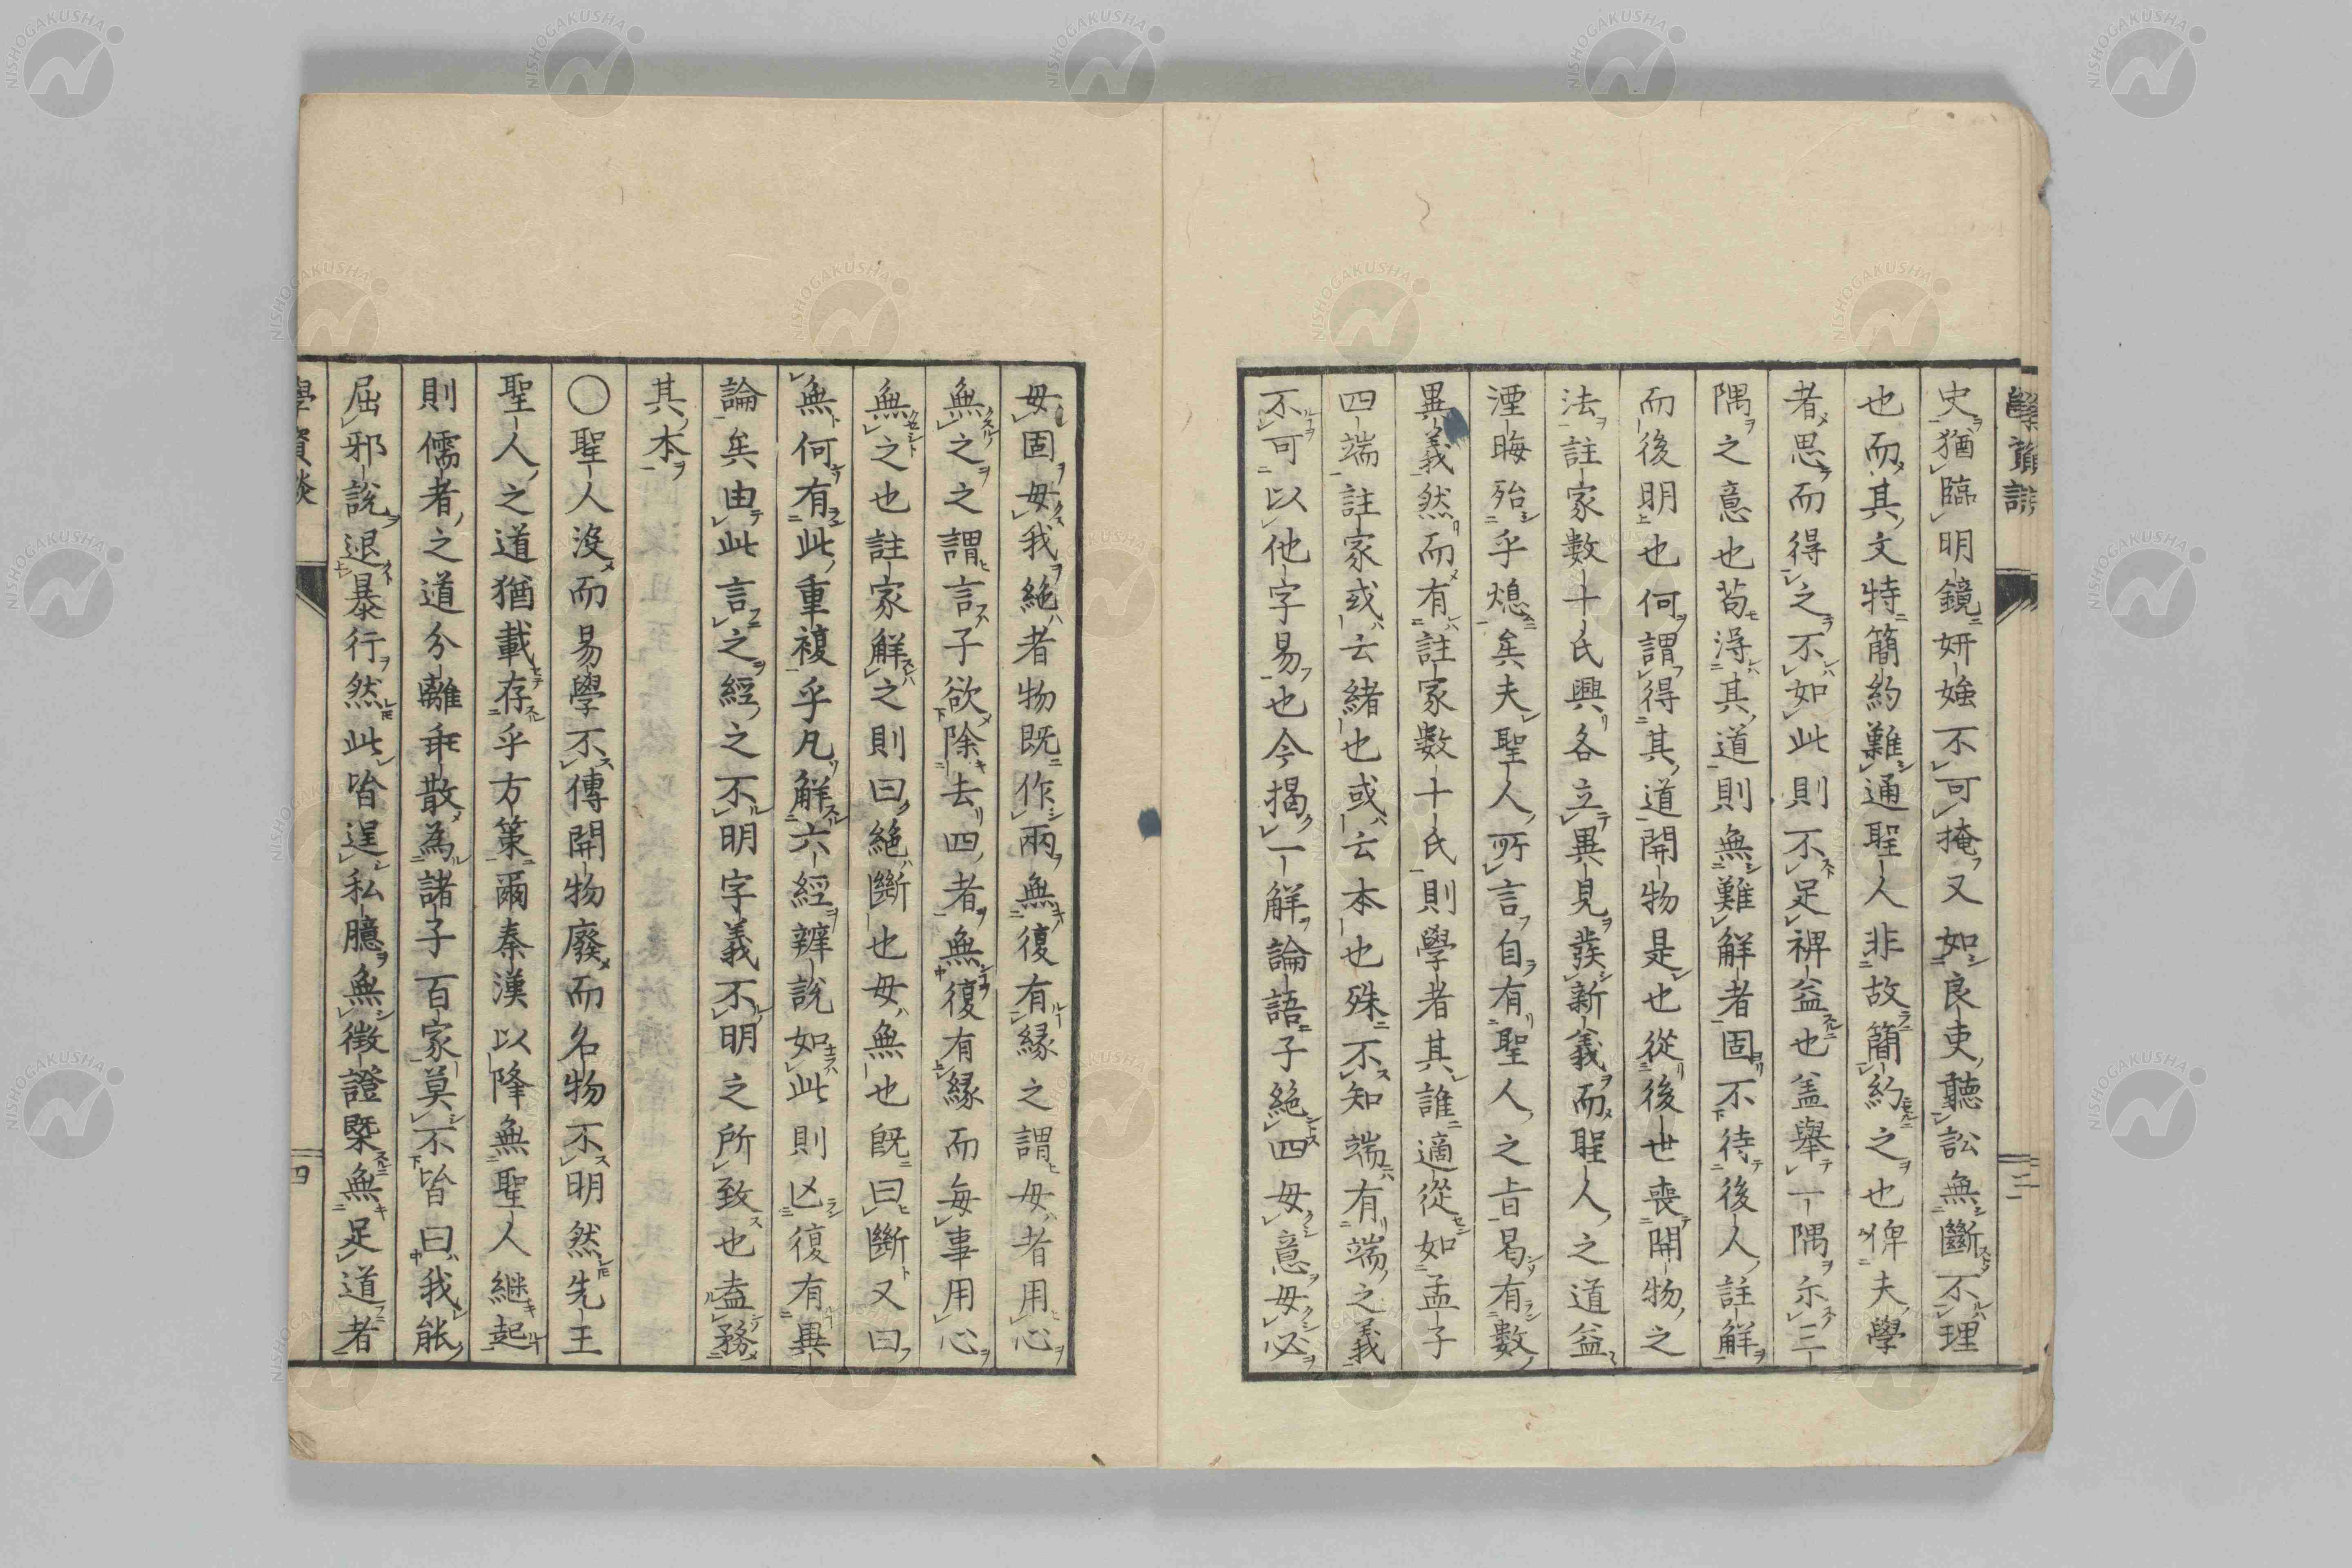 史猶臨明鏡妍媸不可掩又如良吏聽訟無斷不理
也而其文特簡約難通聖人非故簡約之也俾夫學
者思而得之不如此則不足裨益也盖舉一隅示三
隅之意也苟得其道則無難解者固不待後人註解
而後明也何謂得其道開物是也從後世喪開物之
法註家數十氏興各立異見發新義而聖人之道益
湮晦殆乎熄矣夫聖人所言自有聖人之旨曷有數
異義然而有註家數十氏則學者其誰適從如孟子
四端註家或云緒也或云本也殊不知端有端之義
不可以他字易也今揭一解論語子絶四毋意毋必
毋固毋我絶者物既作兩無復有緣之謂毋者用心
無之之謂言子欲除去四者無復有緣而每事用心
無之也註家解之則曰絶斷也毋無也既曰斷又曰
無何有此重複乎凡解六經辨說如此則必復有異
論矣由此言之經之不明字義不明之所致也盍務
其本
〇聖人沒而易學不傳開物廢而名物不明然先王
聖人之道猶載存乎方策爾秦漢以降無聖人継起
則儒者之道分離乖散為諸子百家莫不皆曰我能
屈邪說退暴行然此皆逞私臆無徵證槩無足道者
學資談
四
NISHOGAKUSHA